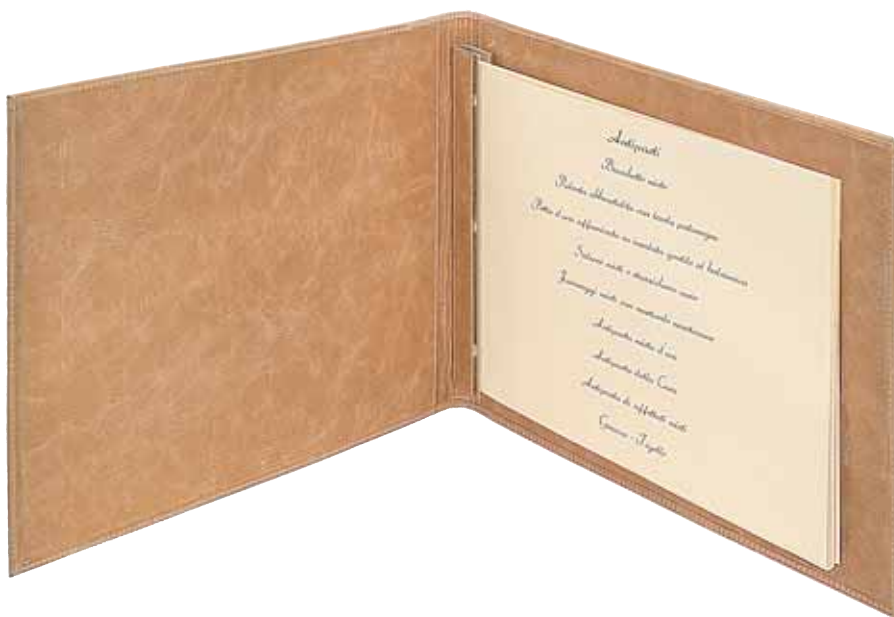 Antipasti
Bruschette miste
Polenta abbrustolita con lardo
Petto d'oca affumicato su insalata gentile al balsamico
Salumi misti e
Formaggi misti con mostarda mantovana
Antipasto misto d'oca
Antipasto della Casa
Antipasto di affettati misti